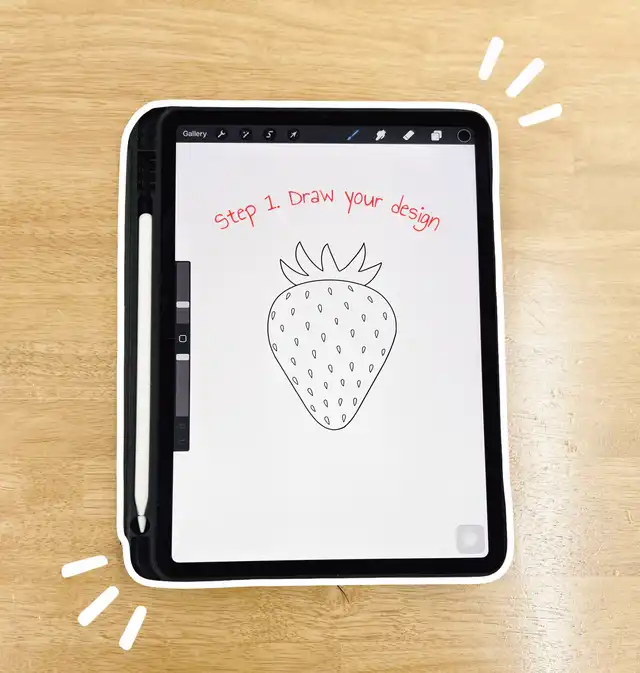 Gallery
Step 1. Draw your design